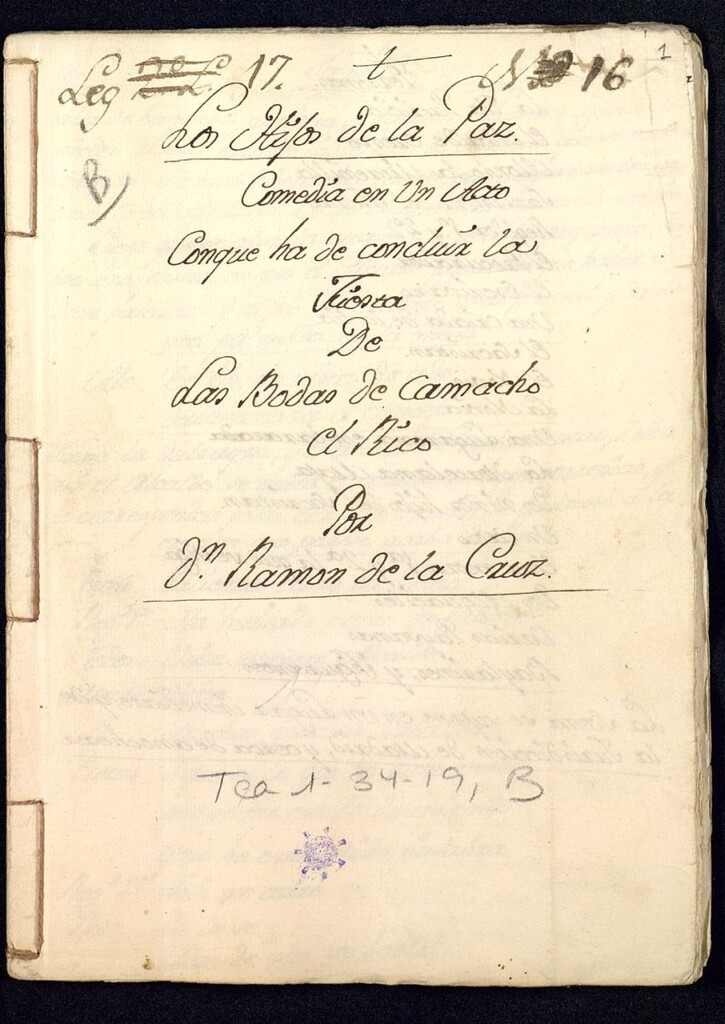 Leg 17. N 16
1
Los Hijos de la Paz.
B)
Comedia en Un Acto
Conque ha de concluir la
Fiesta
De
Las Bodas de Camacho
el Rico
Por
D.n Ramon de la Cruz.
Tea 1-34-19, B